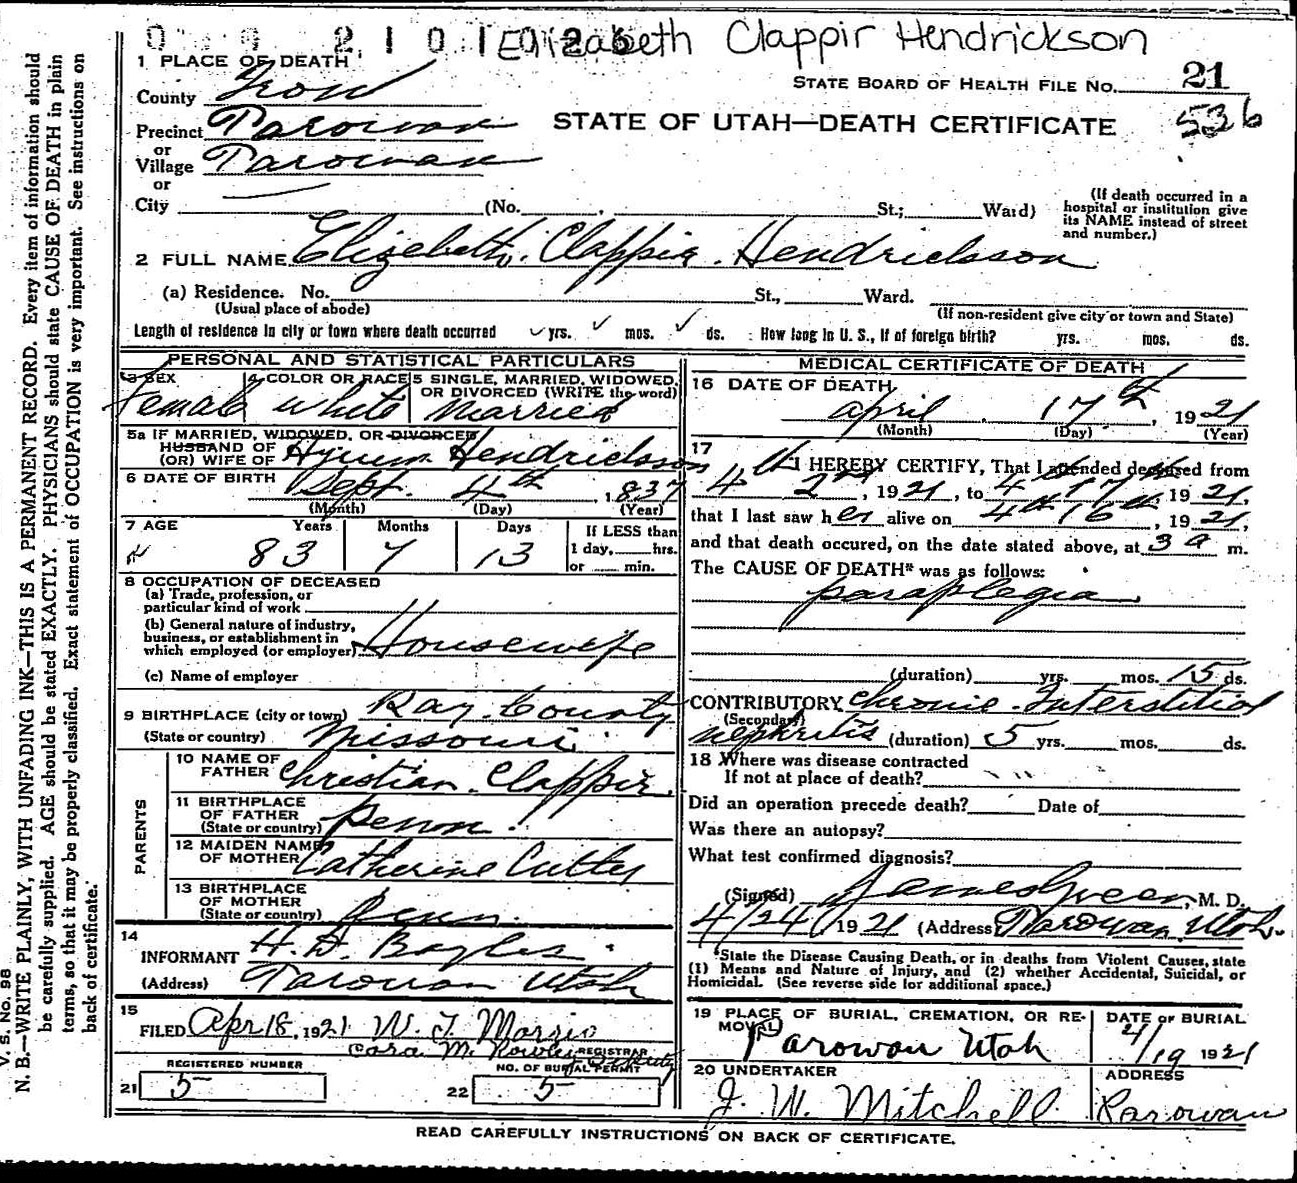 Elizabeth Clappir Hendrickson
1 PLACE OF DEATH
STATE BOARD OF HEALTH FILE NO. 21
County Iron
536
STATE OF UTAH—DEATH CERTIFICATE
Precinct Parowan
or
Village Parowan
or
City (No. , St.; Ward)
(If death occurred in a hospital or institution give its NAME instead of street and number.)
2 FULL NAME Elizabeth Clappir Hendrickson
(a) Residence. No. St., Ward.
(Usual place of abode) (If non-resident give city or town and State)
Length of residence in city or town where death occurred yrs. mos. ds. How long in U. S., if of foreign birth? yrs. mos. ds.
PERSONAL AND STATISTICAL PARTICULARS
3 SEX 4 COLOR OR RACE 5 SINGLE, MARRIED, WIDOWED, OR DIVORCED (WRITE the word)
Female White Married
5a IF MARRIED, WIDOWED, OR DIVORCED
HUSBAND OF
(OR) WIFE OF Hyrum Hendrickson
6 DATE OF BIRTH Sept. 4th, 1837
(Month) (Day) (Year)
7 AGE Years Months Days If LESS than
83 7 13 1 day, hrs.
or min.
8 OCCUPATION OF DECEASED
(a) Trade, profession, or
particular kind of work
(b) General nature of industry,
business, or establishment in
which employed (or employer) Housewife
(c) Name of employer
9 BIRTHPLACE (city or town) Ray County
(State or country) Missouri
PARENTS
10 NAME OF FATHER Christian Clappir
11 BIRTHPLACE OF FATHER
(State or country) Penn.
12 MAIDEN NAME OF MOTHER Catherine Cutler
13 BIRTHPLACE OF MOTHER
(State or country) Penn.
14
INFORMANT H. D. Bayles
(Address) Parowan Utah
15
FILED Apr 18, 1921
REGISTRAR
REGISTERED NUMBER NO. OF BURIAL PERMIT
21 5 22 5
MEDICAL CERTIFICATE OF DEATH
16 DATE OF DEATH
April 17th, 1921
(Month) (Day) (Year)
17
I HEREBY CERTIFY, That I attended deceased from
4th 2nd, 1921, to 4th 17th, 1921,
that I last saw her alive on 4th 16th, 1921,
and that death occured, on the date stated above, at 3 a m.
The CAUSE OF DEATH* was as follows:
paraplegia
(duration) yrs. mos. 15 ds.
CONTRIBUTORY Chronic Interstitial
(Secondary)
nephritis (duration) 5 yrs. mos. ds.
18 Where was disease contracted
If not at place of death?
Did an operation precede death? Date of
Was there an autopsy?
What test confirmed diagnosis?
(Signed) James Green, M. D.
4/24, 1921 (Address) Parowan, Utah.
*State the Disease Causing Death, or in deaths from Violent Causes, state
(1) Means and Nature of Injury, and (2) whether Accidental, Suicidal, or
Homicidal. (See reverse side for additional space.)
19 PLACE OF BURIAL, CREMATION, OR REMOVAL DATE OF BURIAL
Parowan Utah 4/19 1921
20 UNDERTAKER ADDRESS
J. W. Mitchell Parowan
READ CAREFULLY INSTRUCTIONS ON BACK OF CERTIFICATE.
V. S. No. 98
N. B.—WRITE PLAINLY, WITH UNFADING INK—THIS IS A PERMANENT RECORD. Every item of information should
be carefully supplied. AGE should be stated EXACTLY. PHYSICIANS should state CAUSE OF DEATH in plain
terms, so that it may be properly classified. Exact statement of OCCUPATION is very important. See instructions on
back of certificate.